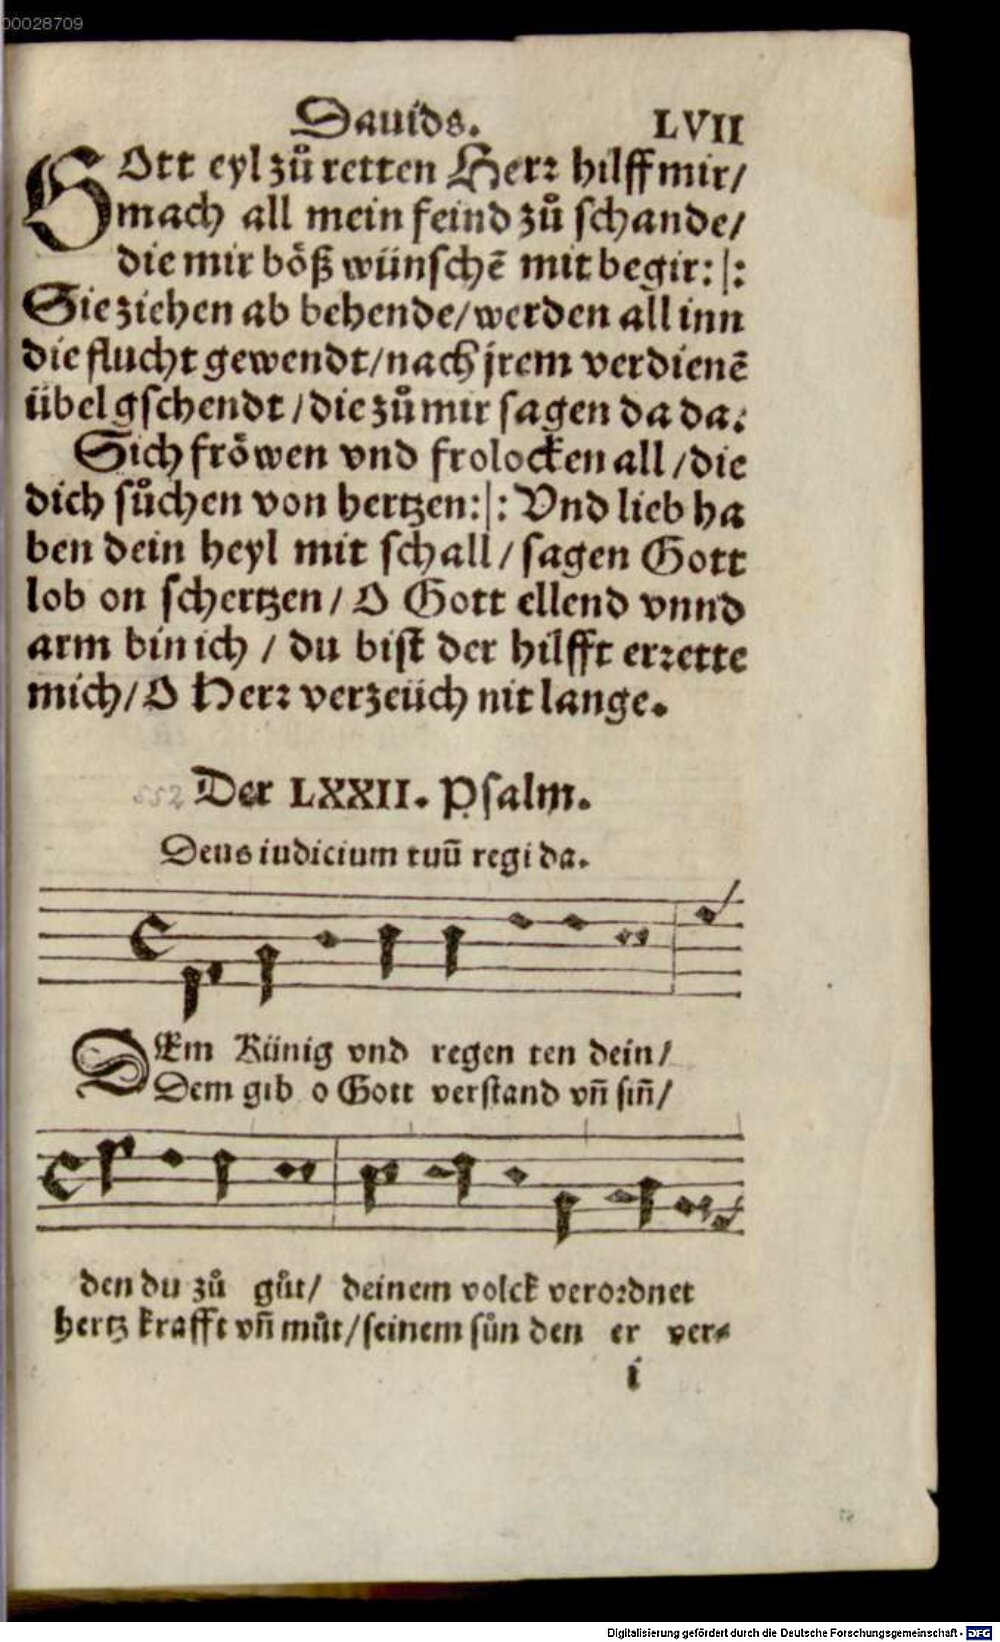 00028709
Dauids. LVII
GOtt eyl zů retten Herꝛ hilff mir/
mach all mein feind zů schande/
die mir böß wünschē mit begir:|:
Sie ziehen ab behende/werden all inn
die flucht gewendt/nach jrem verdienē
übel gschendt/die zů mir sagen da da.
Sich fröwen vnd frolocken all/die
dich sůchen von hertzen:|: Vnd lieb ha
ben dein heyl mit schall/sagen Gott
lob on schertzen/O Gott ellend vnnd
arm bin ich/du bist der hilfft erꝛette
mich/O Herꝛ verzeüch nit lange.
552 Der LXXII. Psalm.
Deus iudicium tuū regi da.
DEm Künig vnd regen ten dein/
Dem gib o Gott verstand vn̄ sin̄/
den du zů gůt/ deinem volck veroꝛdnet
hertz krafft vn̄ můt/seinem sůn den er ver-
i
Digitalisierung gefördert durch die Deutsche Forschungsgemeinschaft - DFG